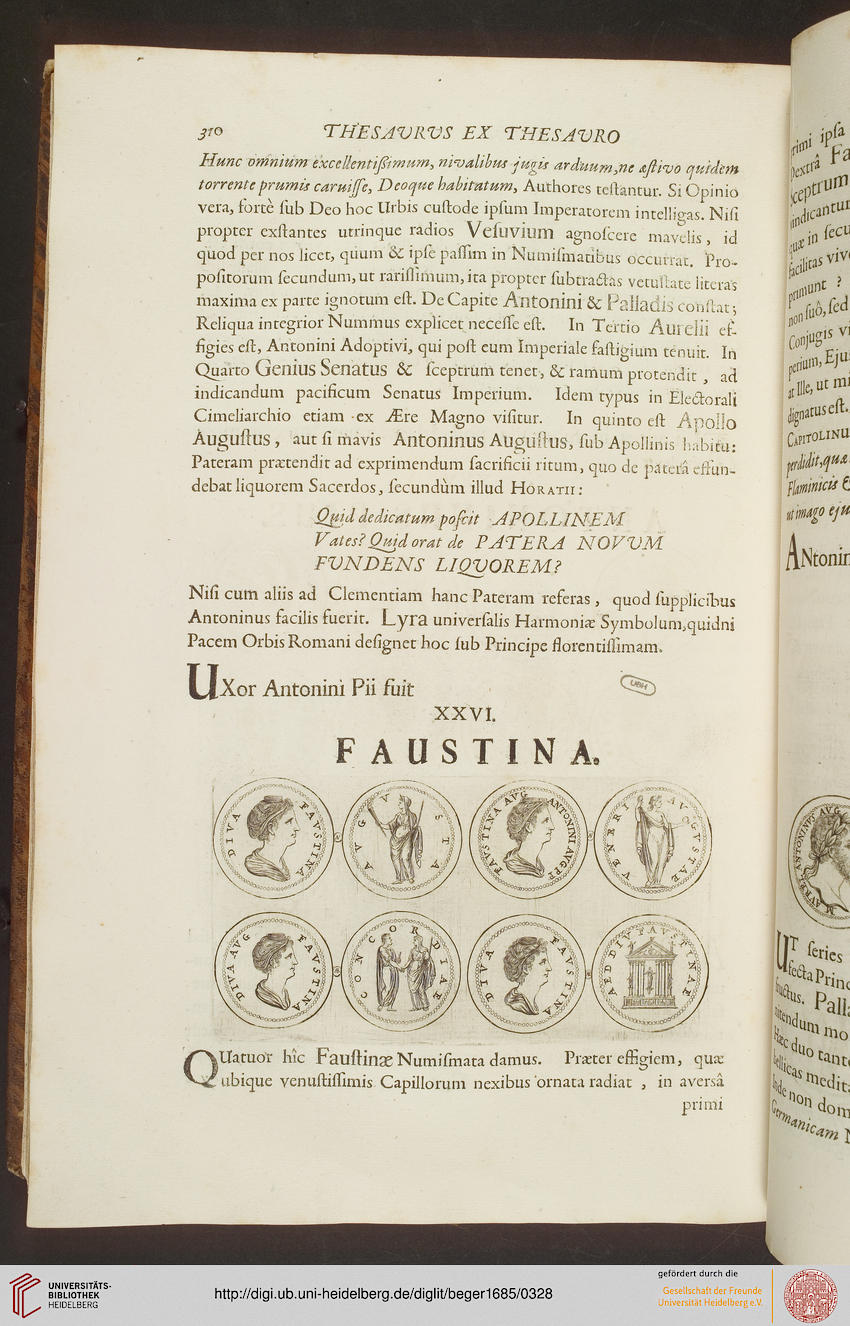 310 THESAVRVS EX THESAVRO
Hunc omnium excellentißimum, nivalibus jugis arduum, ne æſtivo quidem
torrente prumis caruiſſe, Deoque habitatum, Authores teſtantur. Si Opinio
vera, fortè ſub Deo hoc Urbis cuſtode ipſum Imperatorem intelligas. Niſi
propter exſtantes utrinque radios Veſuvium agnoſcere mavelis, id
quod per nos licet, quum & ipſe paſſim in Numiſmatibus occurrat. Pro-
poſitorum ſecundum, ut rariſſimum, ita propter ſubtractas vetuſtate literas
maxima ex parte ignotum eſt. De Capite Antonini & Palladis conſtat;
Reliqua integrior Nummus explicet neceſſe eſt. In Tertio Aurelii ef-
figies eſt, Antonini Adoptivi, qui poſt eum Imperiale faſtigium tenuit. In
Quarto Genius Senatus & ſceptrum tenet, & ramum protendit, ad
indicandum pacificum Senatus Imperium. Idem typus in Electorali
Cimeliarchio etiam ex Ære Magno viſitur. In quinto eſt Apollo
Auguſtus, aut ſi mavis Antoninus Auguſtus, ſub Apollinis habitu:
Pateram prætendit ad exprimendum ſacrificii ritum, quo de paterâ effun-
debat liquorem Sacerdos, ſecundùm illud HORATII:
Quid dedicatum poſcit APOLLINEM
Vates? Quid orat de PATERA NOVVM
FVNDENS LIQVOREM?
Niſi cum aliis ad Clementiam hanc Pateram referas, quod ſupplicibus
Antoninus facilis fuerit. Lyra univerſalis Harmoniæ Symbolum, quidni
Pacem Orbis Romani deſignet hoc ſub Principe florentiſſimam.
UXor Antonini Pii fuit
UBH
XXVI.
FAUSTINA.
DIVA FAVSTINA
AVGVSTA
FAVSTINA AVG ANTONINI AVG PP
VENERI AVGVSTAE
DIVA AVG FAVSTINA
CONCORDIAE
DIVA FAVSTINA
AED DIV FAVSTINAE
QUatuor hîc Fauſtinæ Numiſmata damus. Præter effigiem, quæ
ubique venuſtiſſimis Capillorum nexibus ornata radiat, in aversâ
primi
rimi ipſa
Dextrâ Fa
ſceptrum
indicantur
quæ in ſecu
facilitas viv
primunt ?
non ſuô, ſed
Conjugis vi
perium, Eju
at Ille, ut mi
dignatus eſt.
CAPITOLINU
perdidit, quæ
Flaminicis &
ut imago eju
ANtonin
M AVREL ANTONINVS AVG
UT ſeries
fecta Princ
Palla
mo
Hæc duo tant
bellicas medit
Inde non dom
Germanicam
UNIVERSITÄTS-
BIBLIOTHEK
HEIDELBERG
http://digi.ub.uni-heidelberg.de/diglit/beger1685/0328
gefördert durch die
Gesellschaft der Freunde
Universität Heidelberg e.V.